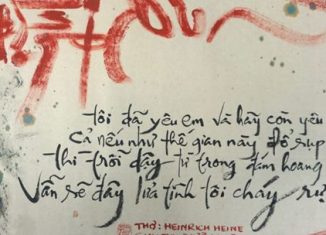 tôi đã yêu em và hãy còn yêu
Cả nếu như thế gian này đổ sụp
thì trỗi dậy từ trong đám hoang
Vẫn sẽ dậy lửa tình tôi cháy rực
THƠ: HEINRICH HEINE